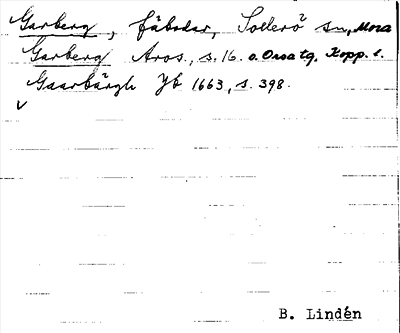 Garberg, fäbodar, Sollerö sn, Mora
Garberg Aros., s. 16. o. Orsa tg, Kopp. l.
Gaarbärgh Jb 1663, s. 398.
v
B. Lindén